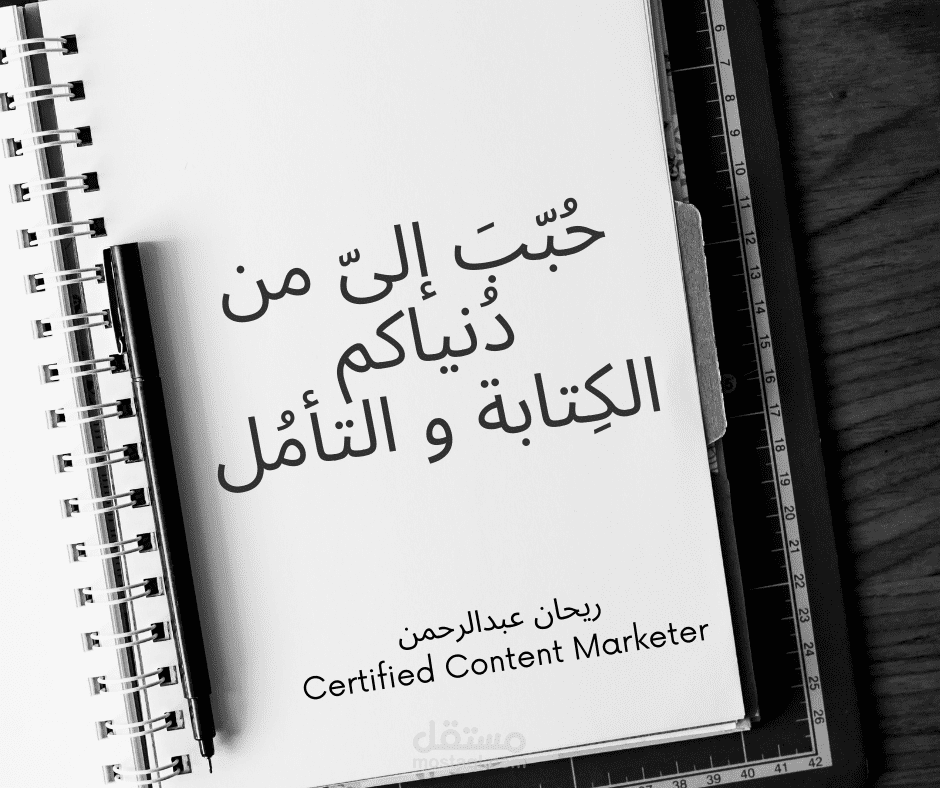 حُبّبَ إلىّ من
دُنياكم
الكِتابة و التأمُل
ريحان عبدالرحمن
Certified Content Marketer
مستقل
mostaql.com
6
7
8
9
10
11
12
13
14
15
16
17
18
19
20
21
22
23
24
25
26
42
41
40
39
38
37